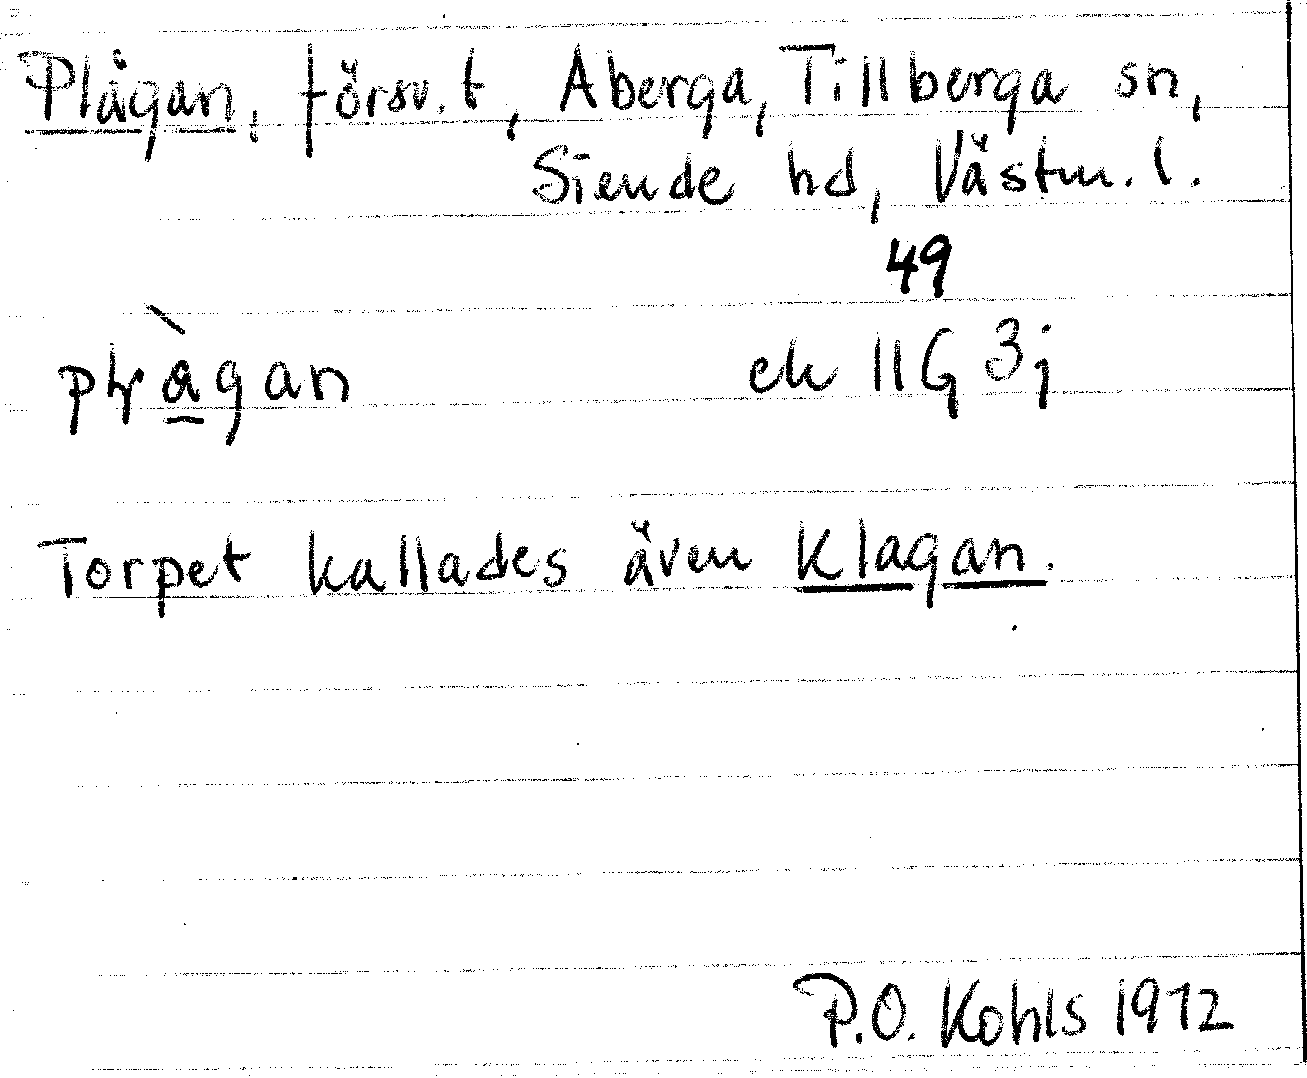 Plågan, försv. t, Aberga, Tillberga sn,
Siende hd, Västm. l.
49
ek 11G 3j
Torpet kallades även Klagan.
P.O. Kohls 1972